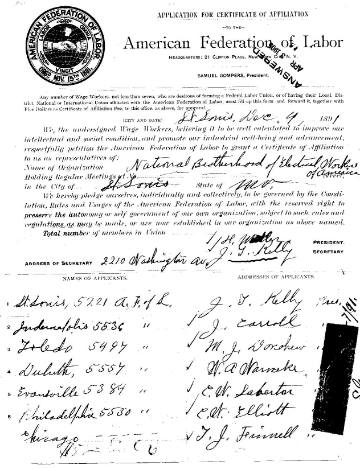 APPLICATION FOR CERTIFICATE OF AFFILIATION
—TO THE—
American Federation of Labor
AMERICAN FEDERATION OF LABOR
HEADQUARTERS: 21 CLINTON PLACE, NEW
SAMUEL GOMPERS, President.
ANSWERED
Any number of Wage Workers, not less than seven, who are desirous of forming a Federal Labor Union, or of having their Local, District National or International Union affiliated with the American Federation of Labor, must fill up this form and forward it, together with Five Dollars for Certificate of Affiliation Fee, to this office, as above, for approval
(CITY AND DATE) St Louis, Dec. 9 1891
We, the undersigned Wage Workers, believing it to be well calculated to improve our
intellectual and social condition, and promote our industrial well-being and advancement,
respectfully petition the American Federation of Labor to grant a Certificate of Affiliation
to us as representatives of:
Name of Organization National Brotherhood of Electrical Workers of America
Holding Regular Meetings at
in the City of St Louis State of Mo.
We hereby pledge ourselves, individually and collectively, to be governed by the Constitution, Rules and Usages of the American Federation of Labor, with the reserved right to
preserve the autonomy or self government of our own organization, subject to such rules and
regulations as may be made, or are now established in our organization as above named.
Total number of members in Union
PRESIDENT.
J. T. Kelly SECRETARY
ADDRESS OF SECRETARY 2210 Washington Av
NAMES OF APPLICANTS. ADDRESSES OF APPLICANTS.
St Louis, 5221 A. F. of L. J. T. Kelly
Indianapolis 5536 " J. Carroll
Toledo 5497 " M. J.
Duluth, 5557 " W. A.
Evansville 5389 " E. W.
Philadelphia 5530 " E. W. Elliott
Chicago T. J. Finnell